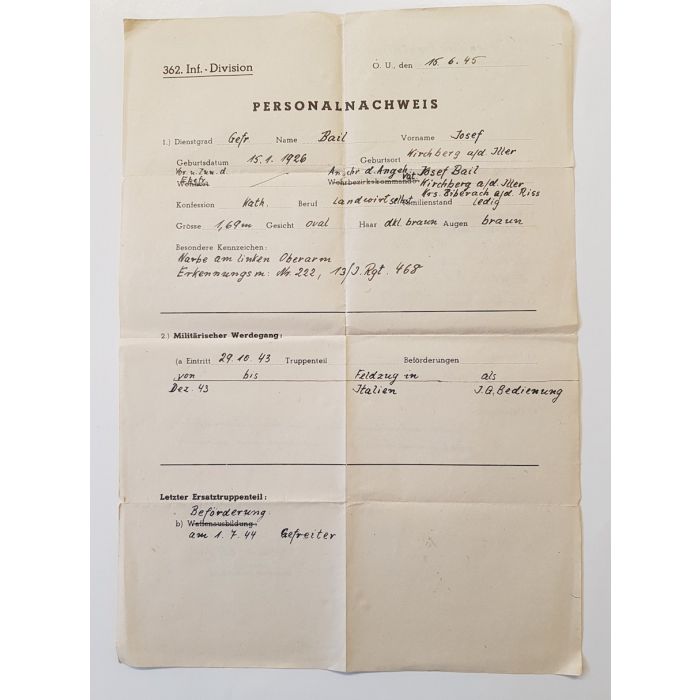 362. Inf.-Division O. U., den 15.6.45
PERSONALNACHWEIS
1.) Dienstgrad Gefr Name Bail Vorname Josef
Geburtsdatum 15.1.1926 Geburtsort Kirchberg a/d Iller
Vor. u. Zun. d. Anschr. d. Angeh. Josef Bail
Ehefr. Vat.
Wohnort Wehrbezirkskommando Kirchberg a/d Iller
Krs. Biberach a/d. Riss
Konfession Kath. Beruf Landwirt selbst Familienstand ledig
Grösse 1,69m Gesicht oval Haar dkl. braun Augen braun
Besondere Kennzeichen:
Narbe am linken Oberarm
Erkennungsm: Nr. 222, 13/J. Rgt. 468
2.) Militärischer Werdegang:
(a Eintritt 29.10.43 Truppenteil Beförderungen
von bis Feldzug in als
Dez. 43 Italien J.G. Bedienung
Letzter Ersatztruppenteil:
Beförderung
b) Waffenausbildung:
am 1.7.44 Gefreiter